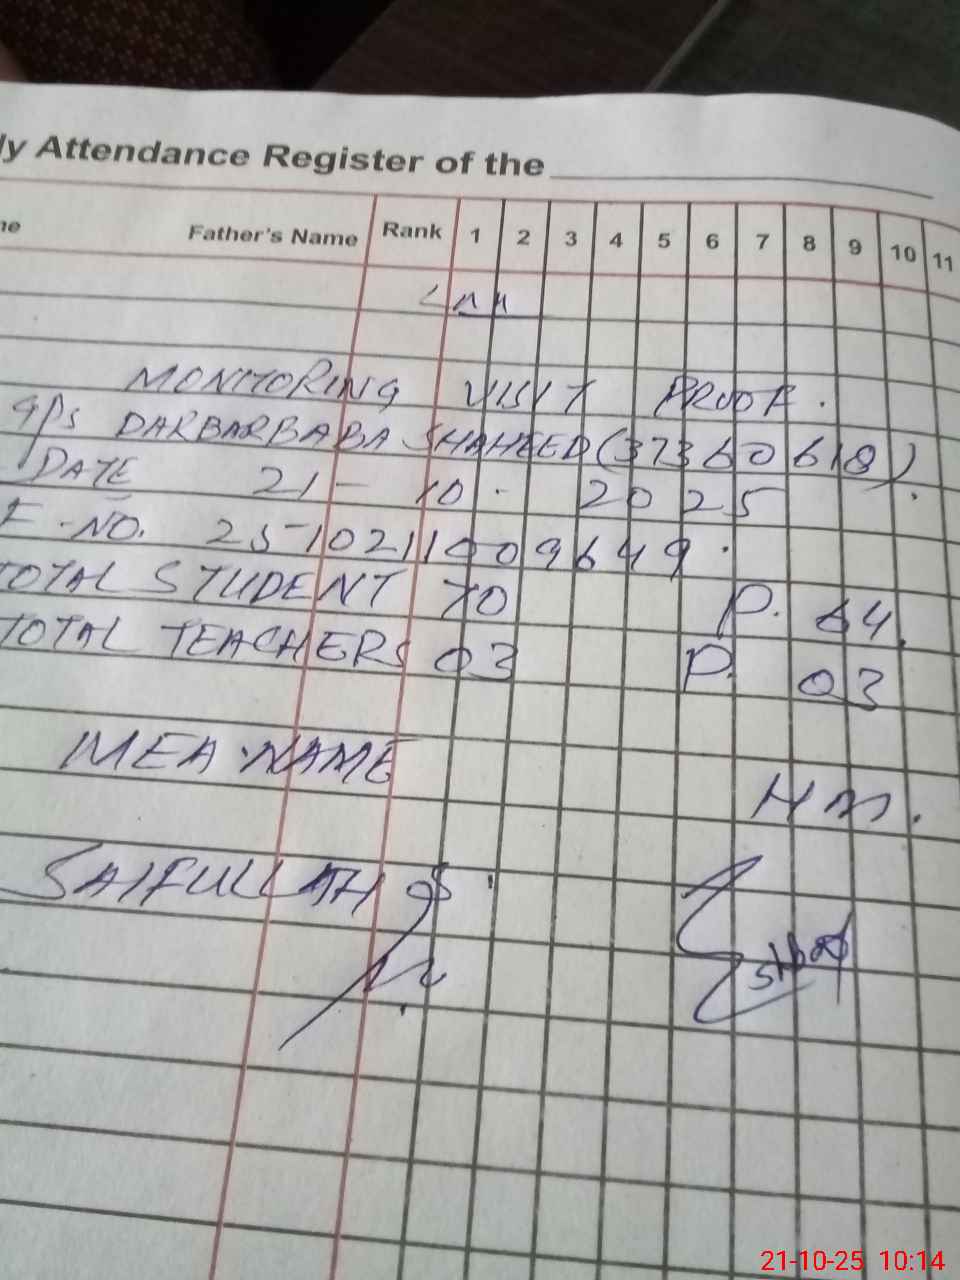 ly Attendance Register of the
ne Father's Name Rank 1 2 3 4 5 6 7 8 9 10 11
MONITORING VISIT PROOF.
GPS DARBARBABA SHAHEED (37360618).
DATE 21-10-2025
F-NO. 25-10211009649.
TOTAL STUDENT 70 P. 64.
TOTAL TEACHERS 03 P. 03
MEA NAME
HM.
SAIFULLAH
21-10-25 10:14